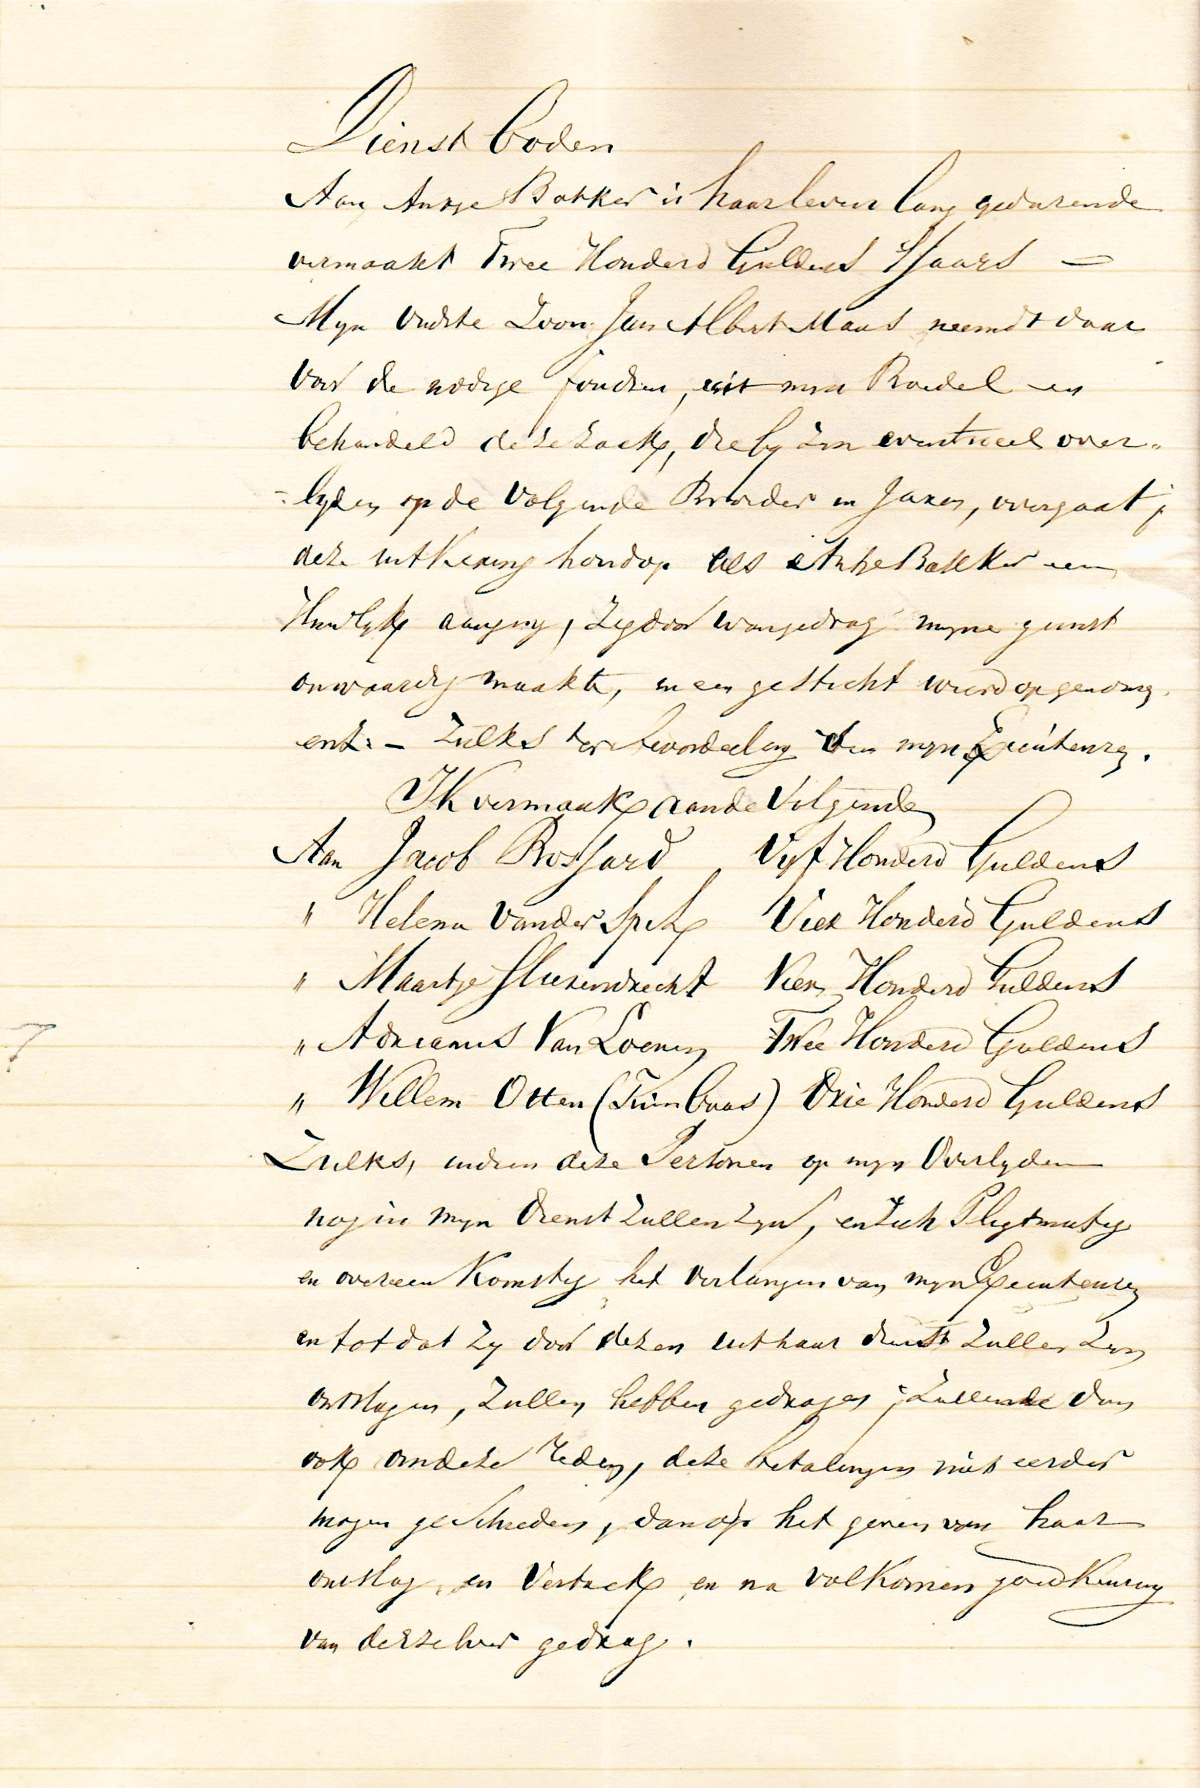 Dienst boden
Aan Antje Bakker is haar leven lang gedurende
vermaakt Twee Honderd Guldens 'Sjaars =
Mijn Oudste Zoon Jan Albert Maas neemt daar
voor de nodige fondsen, uit mijn Boedel en
behandeld deze Zaak, die by Zyn eventueel over-
-lyden op de volgende Broeder in Jaren, overgaat;
deze uitkering houd op als Antje Bakker een
Huwlyk aanging, Zy door wangedrag myne gunst
onwaardig maakte, in een gesticht wierd opgenomen
enz. – Zulks ter beoordeling van myn Executeuren.
IK vermaak aan de Volgende
Aan Jacob Rossard Vyf Honderd Guldens
" Helena van der Spek Vier Honderd Guldens
" Maartje Sluzendrecht Vier Honderd Guldens
" Adrianus Van Loenen Twee Honderd Guldens
" Willem Otten (Tuin baas) Drie Honderd Guldens
Zulks, indien deze Personen op myn Overlyden
nog in myn Dienst Zullen Zyn, en Zich Pligtmatig
en overeen Komstig het verlangen van myn Executeuren
en tot dat Zy door dezen uit haar dienst Zullen Zyn
ontslagen, Zullen hebben gedragen; Zullende dan
ook om deze reden, deze betalingen niet eerder
mogen geschieden, dan op het geven van haar
ontslag en Vertrek en na volkomen goedkeuring
van derzelver gedrag.